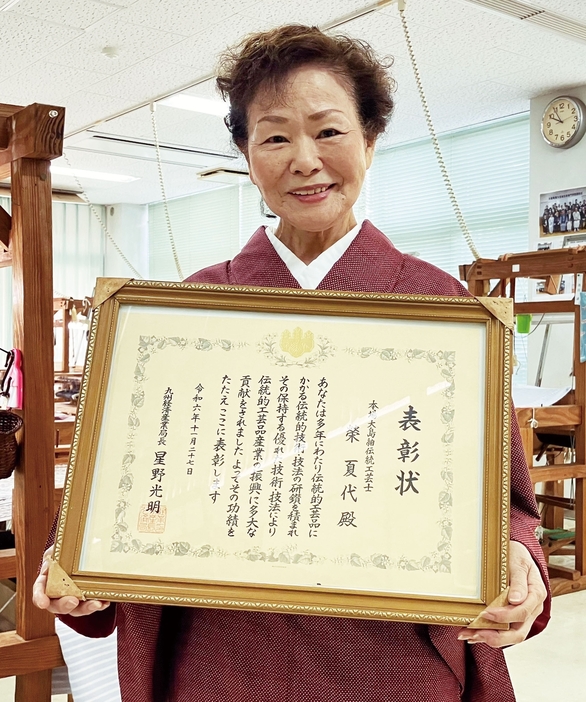 表彰状
本場大島紬伝統工芸士
榮 夏代 殿
あなたは多年にわたり伝統的工芸品に
かかる伝統的技術技法の研鑽を積まれ
その保持する優れた技術技法により
伝統的工芸品産業の振興に多大な
貢献をされました よってその功績を
たたえ ここに表彰します
令和六年十一月二十七日
九州経済産業局長 星野光明